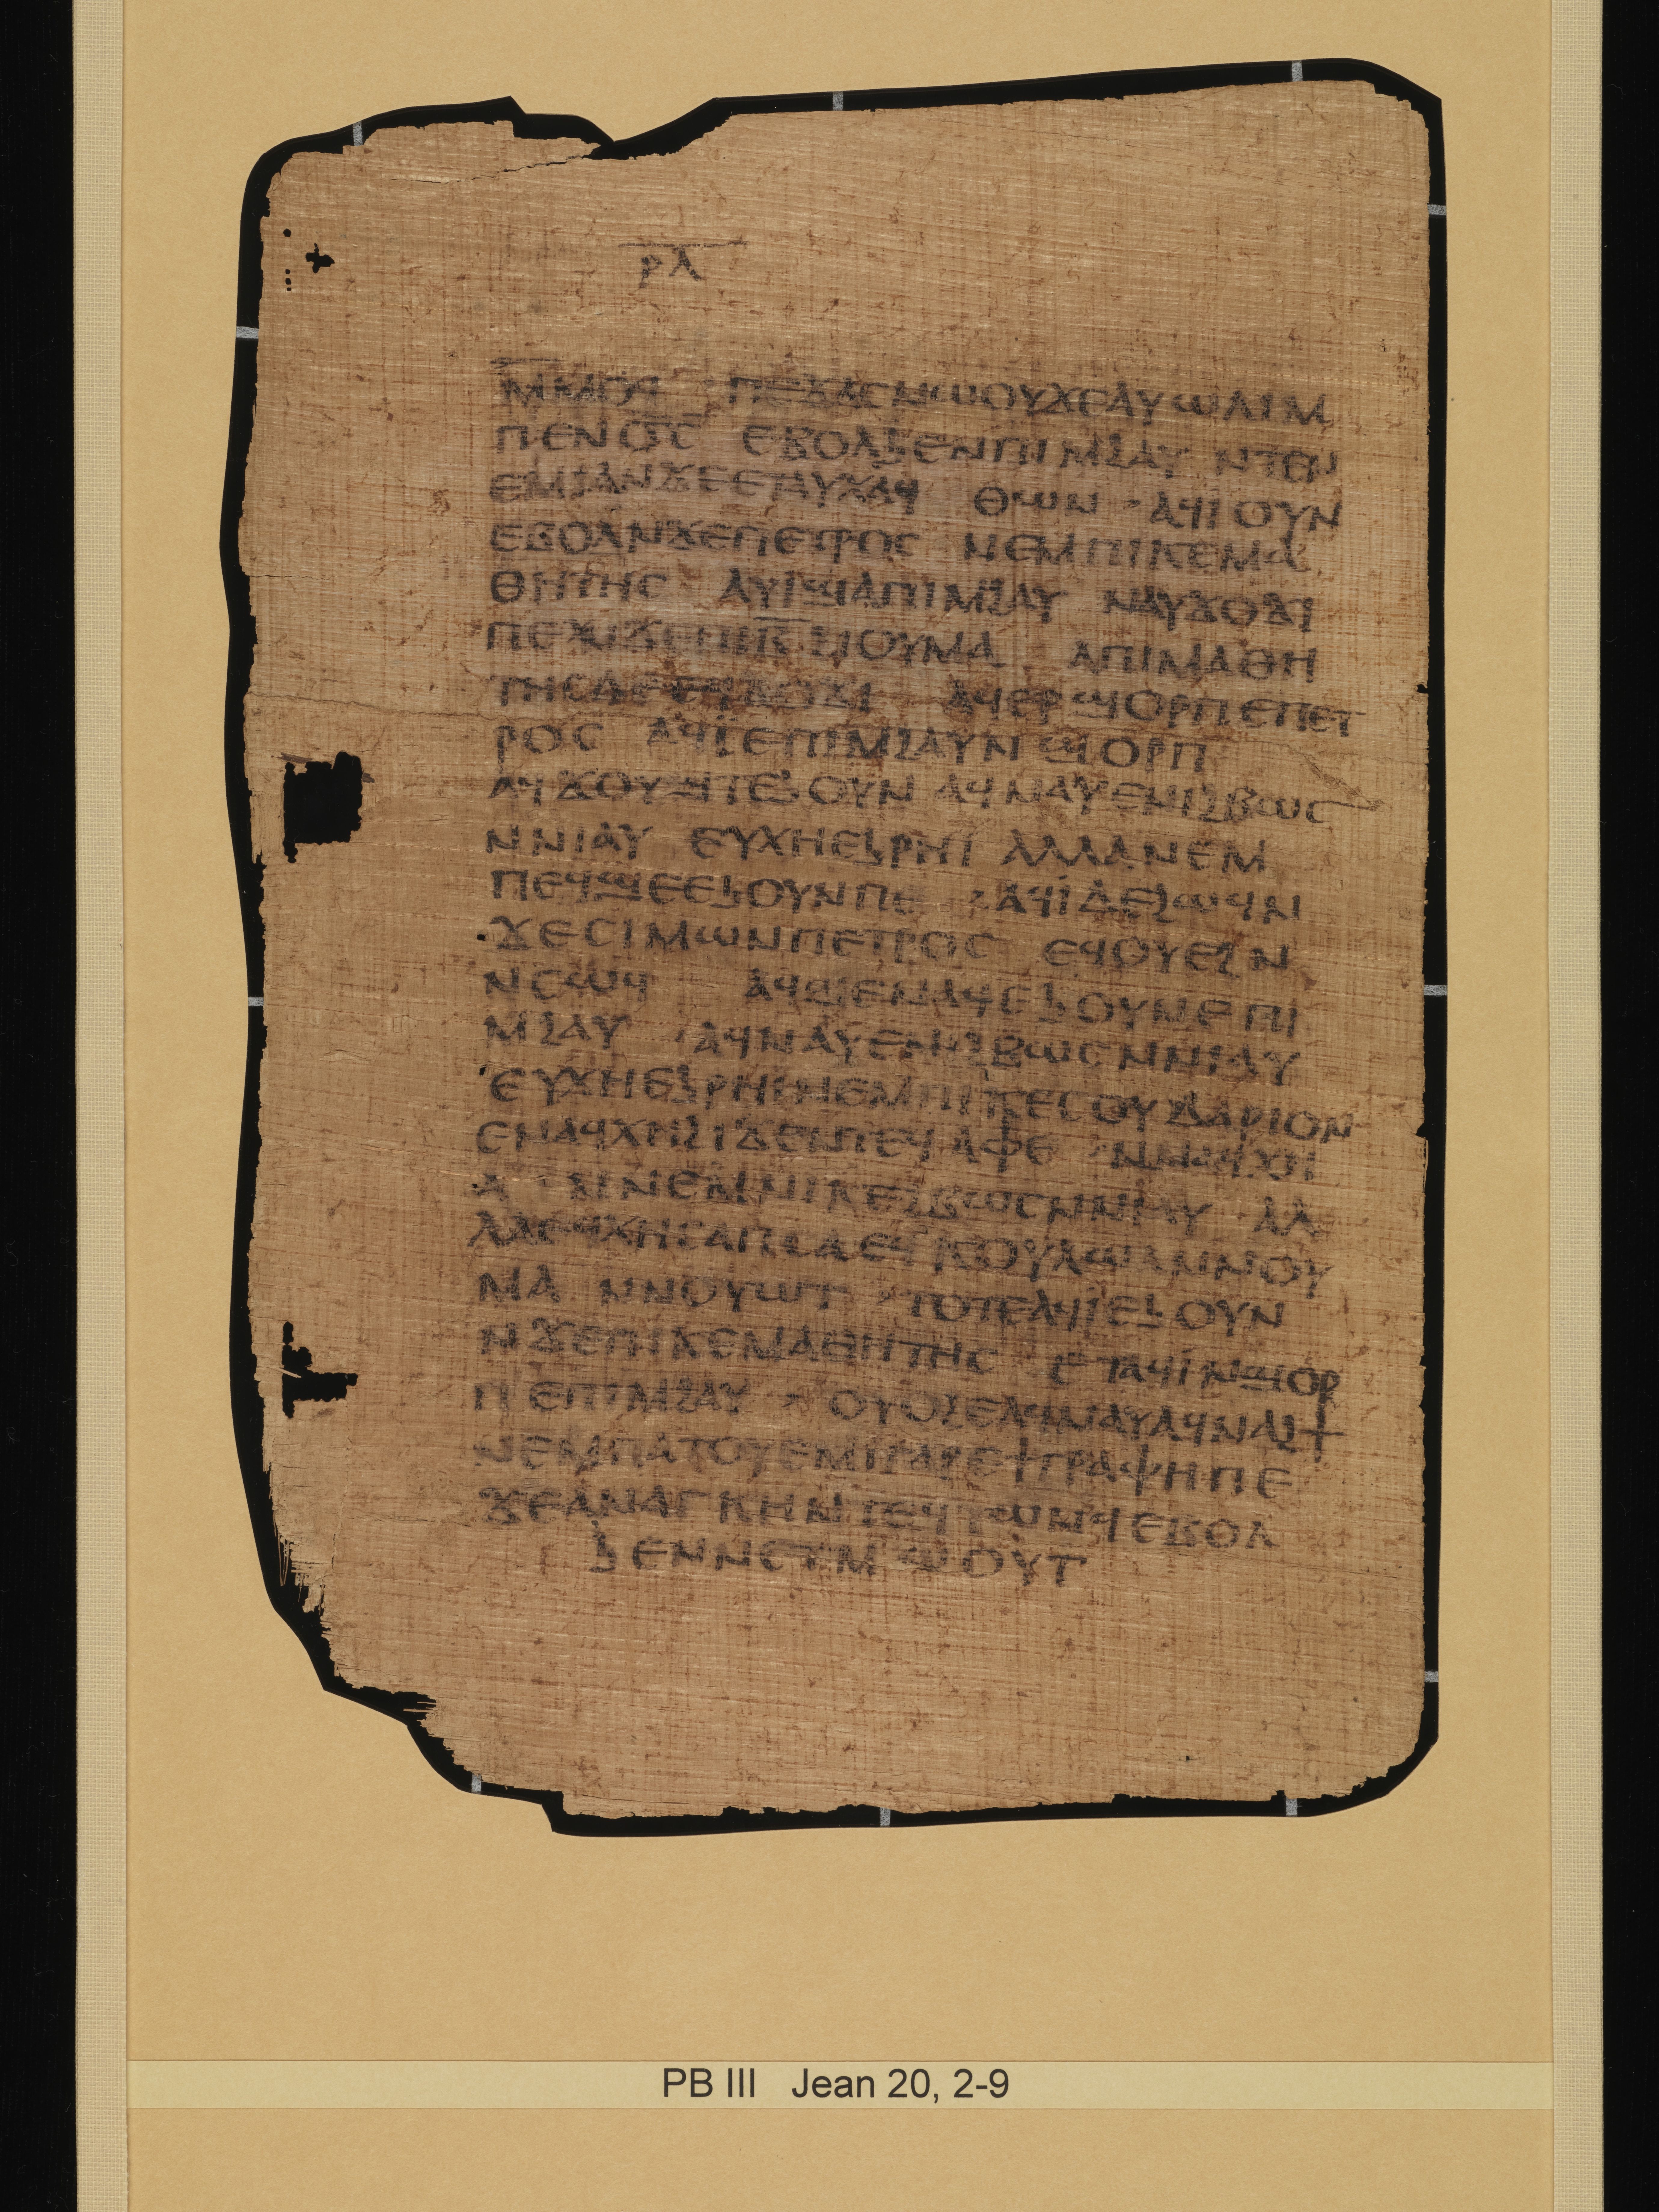 ⲣ̅ⲗ̅
ⲙⲙⲟϥ ⲡⲉϫⲁⲥⲛⲱⲟⲩϫⲉⲁⲩⲱⲗⲓⲙ
ⲡⲉⲛⲟ̅ⲥ̅ ⲉⲃⲟⲗϧⲉⲛⲡⲓⲙϩⲁⲩ ⲛⲧⲉⲛ
ⲉⲙⲓⲁⲛϫⲉⲉⲧⲁⲩⲭⲁϥ ⲑⲱⲛ · ⲁϥⲓⲟⲩⲛ
ⲉⲃⲟⲗⲛϫⲉⲡⲉⲧⲣⲟⲥ ⲛⲉⲙⲡⲓⲕⲉⲙⲁ
ⲑⲏⲧⲏⲥ ⲁⲩⲓϣⲁⲡⲓⲙϩⲁⲩ ⲛⲁⲩϫⲟϫⲓ
ⲡⲉⲛϫⲉⲡⲓⲃ̅ ϩⲓⲟⲩⲙⲁ ⲁⲡⲓⲙⲁⲑⲏ
ⲧⲏⲥⲇⲉ ϫⲟϫⲓ ⲁϥⲉⲣϣⲟⲣⲡⲉⲡⲉⲧ
ⲣⲟⲥ ⲁϥⲓⲉⲡⲓⲙϩⲁⲩⲛϣⲟⲣⲡ
ⲁϥϫⲟⲩϣⲧⲉϧⲟⲩⲛ ⲁϥⲛⲁⲩⲉⲛⲓϩⲃⲱⲥ
ⲛⲛⲓⲁⲩ ⲉⲩⲭⲏⲉϧⲣⲏⲓ ⲁⲗⲗⲁⲛⲉⲙ
ⲡⲉϥϣⲉⲉϧⲟⲩⲛⲡⲉ · ⲁϥⲓⲇⲉϩⲱϥⲛ
ϫⲉⲥⲓⲙⲱⲛⲡⲉⲧⲣⲟⲥ ⲉϥⲟⲩⲉϩⲛ
ⲛⲥⲱϥ ⲁϥϣⲉⲛⲁϥⲉϧⲟⲩⲛⲉⲡⲓ
ⲙϩⲁⲩ · ⲁϥⲛⲁⲩⲉⲛⲓϩⲃⲱⲥⲛⲛⲓⲁⲩ
ⲉⲩⲭⲏⲉϧⲣⲏⲓⲛⲉⲙⲡⲓⲕⲉⲥⲟⲩⲇⲁⲣⲓⲟⲛ
ⲉⲛⲁϥⲭⲏϩⲓϫⲉⲛⲧⲉϥⲁⲫⲉ ⲛⲛⲁϥⲭⲏ
ⲁⲛⲛⲉⲙⲛⲓⲕⲉϩⲃⲱⲥⲛⲛⲓⲁⲩ ⲁⲗ
ⲗⲁⲉϥⲭⲏⲥⲁⲡⲥⲁ ⲉϥⲕⲟⲩⲗⲱⲗⲛⲛⲟⲩ
ⲙⲁ ⲛⲛⲟⲩⲱⲧ · ⲧⲟⲧⲉⲁϥⲓⲉϧⲟⲩⲛ
ⲛϫⲉⲡⲓⲕⲉⲙⲁⲑⲏⲧⲏⲥ ⲉⲧⲁϥⲓⲛϣⲟⲣ
ⲡⲉⲡⲓⲙϩⲁⲩ · ⲟⲩⲟϩⲉⲁϥⲛⲁⲩⲁϥⲛⲁϩϯ
ⲛⲉⲙⲡⲁⲧⲟⲩⲉⲙⲓⲅⲁⲣⲉϯⲅⲣⲁⲫⲏⲡⲉ
ϫⲉⲁⲛⲁⲅⲕⲏⲛⲧⲉϥⲧⲱⲛϥⲉⲃⲟⲗ
ϧⲉⲛⲛⲉⲧⲙⲱⲟⲩⲧ
PB III Jean 20, 2-9